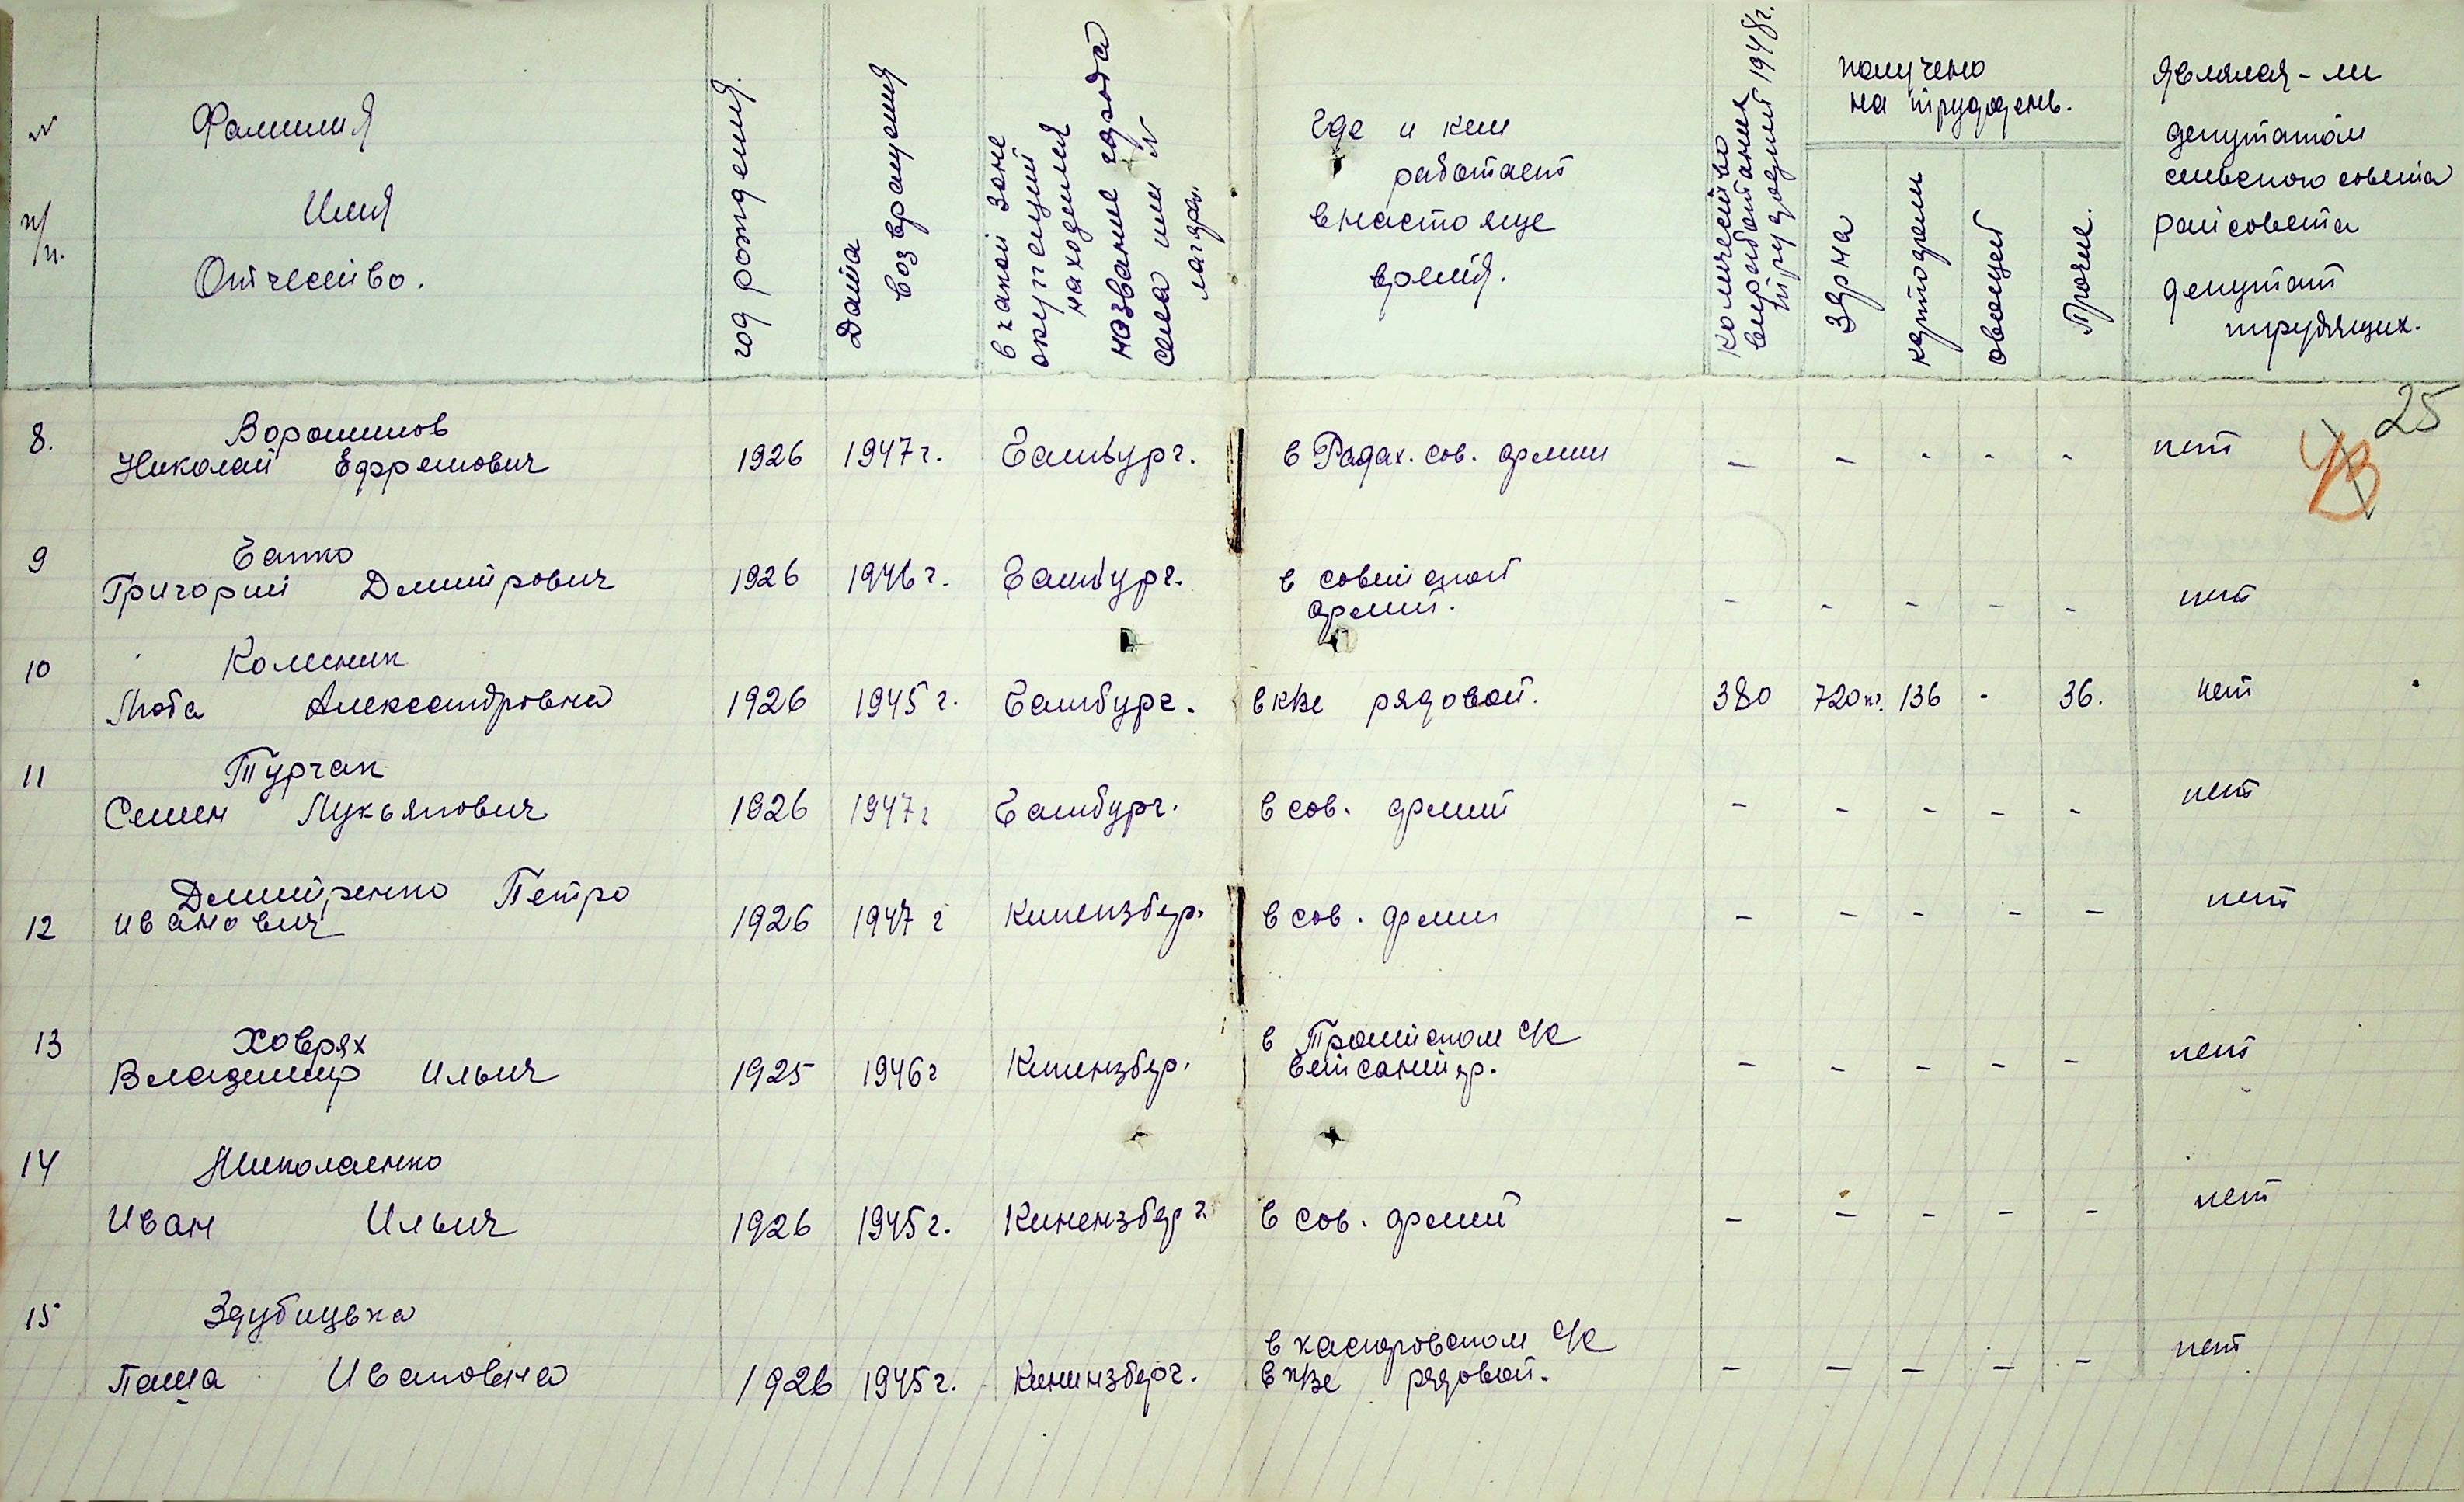 № п/п.
Фамилия
Имя
Отчество.
год рождения.
Дата возвращения
в какой зоне
окупации
находился
название города
села или №
лагеря.
Где и кем
работает
внастояще
время.
Количество
выработаних
трудодней 1948г.
получено
на трудодень.
Зерна
картофели
овощей
Прочие.
Являлся-ли
депутатом
сельского совета
райсовета
депутат
трудящих.
25
8. Ворошилов
Николай Ефремович 1926 1947г. Гамбург. в Радах. сов. армии - - - - - нет
9 Гапко
Григорий Дмитрович 1926 1946г. Гамбург. в советской
армии. - - - - - нет
10 Колесник
Люба Александровна 1926 1945г. Гамбург. в к/зе рядовой. 380 720кг. 136 - 36. нет
11 Турчак
Семен Лукьянович 1926 1947г Гамбург. в сов. армии - - - - - нет
12 Дмитренко Петро
Иванович 1926 1947г Кинензбер. в сов. армии - - - - - нет
13 Ховрях
Владимир Ильич 1925 1946г Кинензбер. в с/с
ветсанитар. - - - - - нет
14 Николаенко
Иван Ильич 1926 1945г. Кинензберг в сов. армии - - - - - нет
15 Здубицька
Паша Ивановна 1926 1945г. Кининзберг. в каспровском с/с
в к/зе рядовой. - - - - - нет